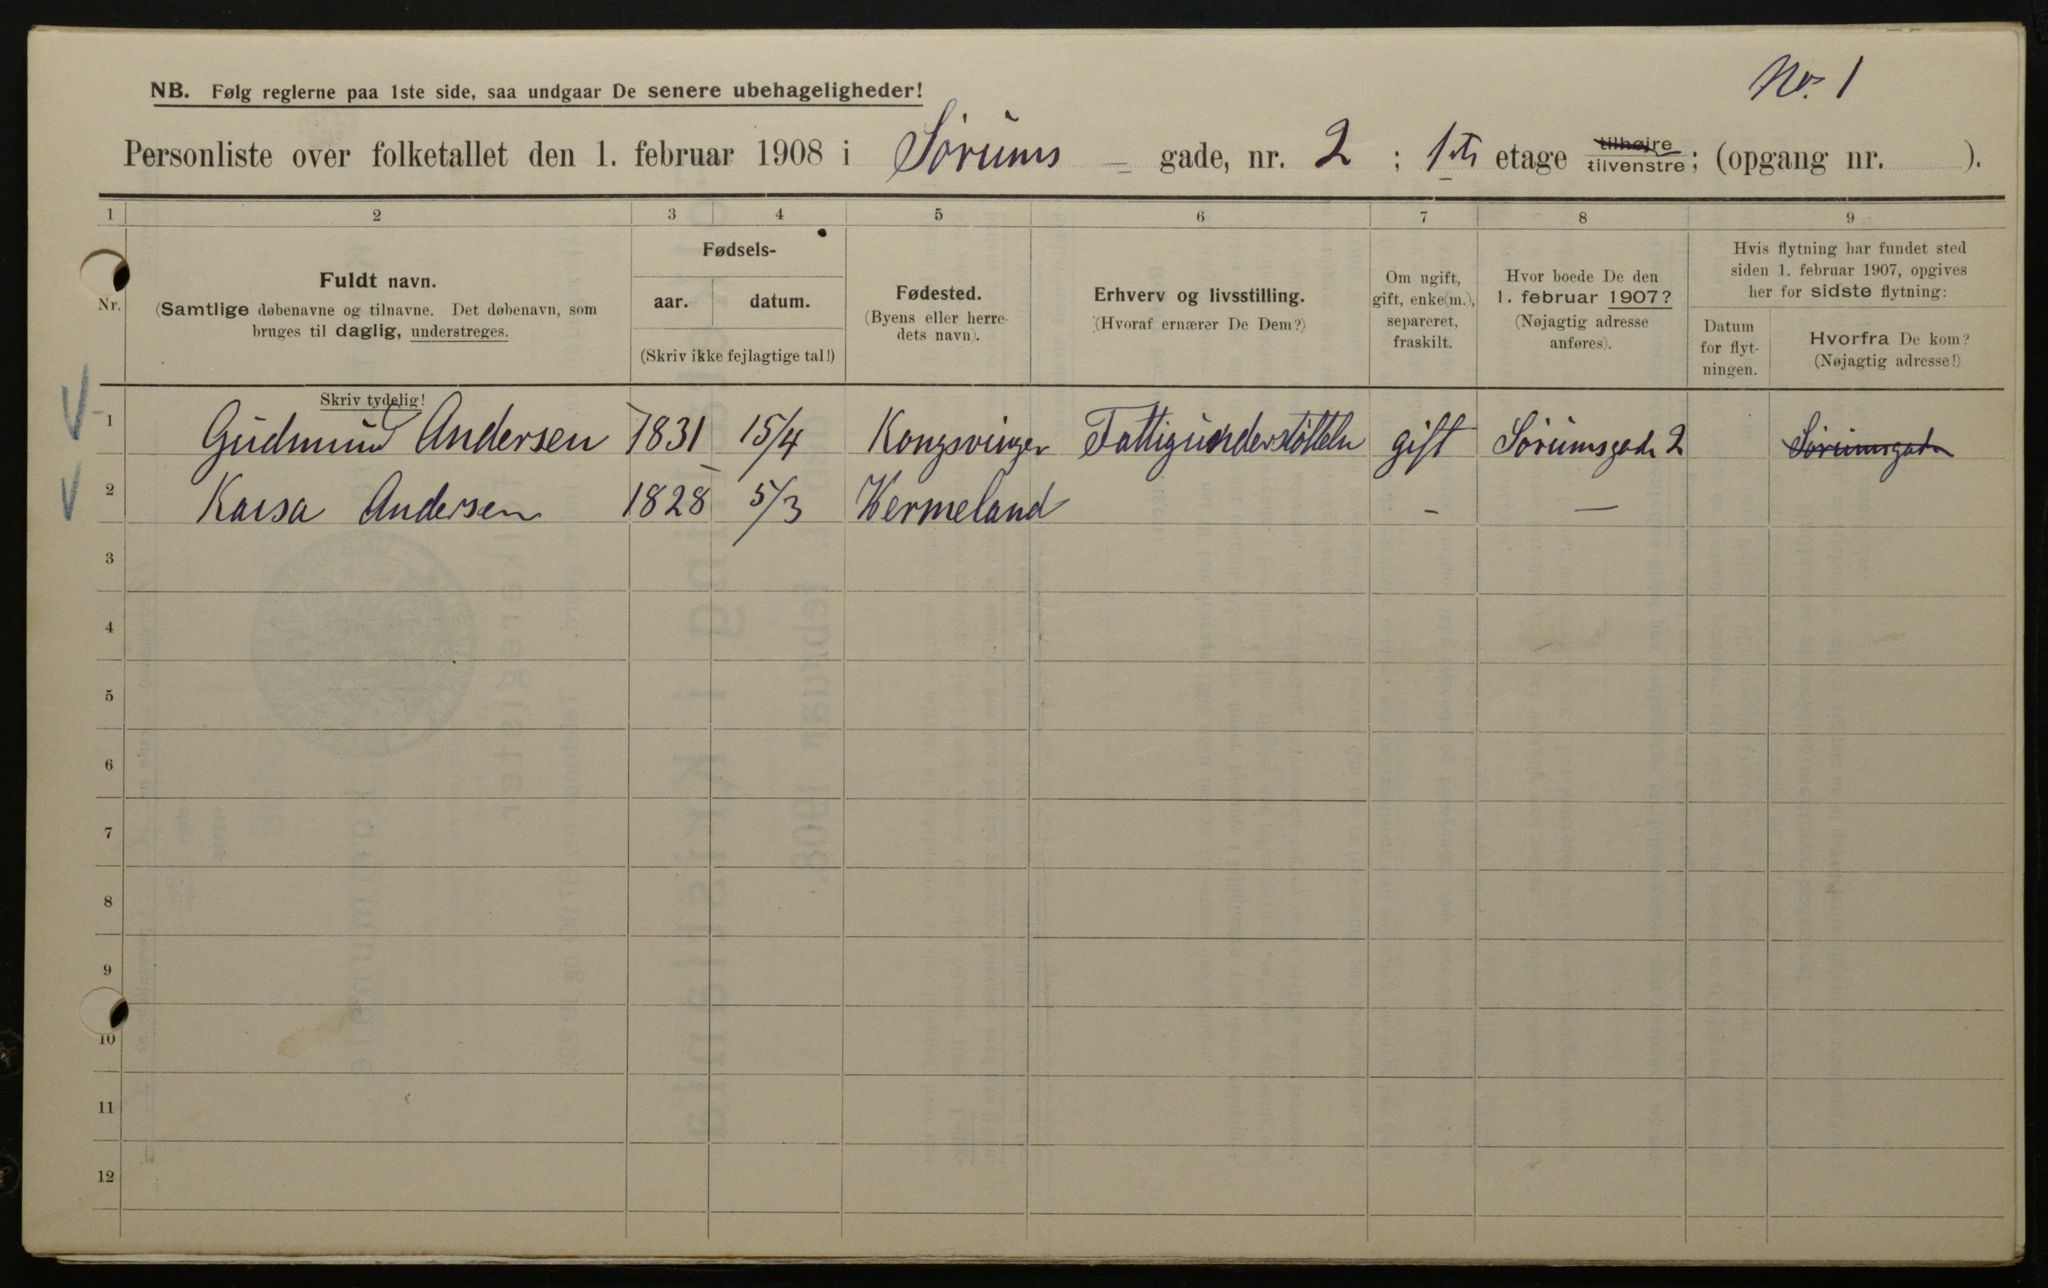 No. 1
NB. Følg reglerne paa 1ste side, saa undgaar De senere ubehageligheder!
Personliste over folketallet den 1. februar 1908 i Sørums gade, nr. 2 ; 1ste etage tilhøjre / tilvenstre ; (opgang nr. ).
1 2 3 4 5 6 7 8 9
Nr.
Fuldt navn.
(Samtlige døbenavne og tilnavne. Det døbenavn, som
bruges til daglig, understreges.
Skriv tydelig!
Fødsels-
aar. datum.
(Skriv ikke fejlagtige tal!)
Fødested.
(Byens eller herre-
dets navn).
Erhverv og livsstilling.
(Hvoraf ernærer De Dem?)
Om ugift,
gift, enke(m.),
separeret,
fraskilt.
Hvor boede De den
1. februar 1907?
(Nøjagtig adresse
anføres).
Hvis flytning har fundet sted
siden 1. februar 1907, opgives
her for sidste flytning:
Datum
for flyt-
ningen.
Hvorfra De kom?
(Nøjagtig adresse!)
1 Gudmund Andersen 1831 15/4 Kongsvinger Fattigunderstøtteln gift Sørumsgade 2 Sørumsgade
2 Kaisa Andersen 1828 5/3 Wermeland - —
3
4
5
6
7
8
9
10
11
12